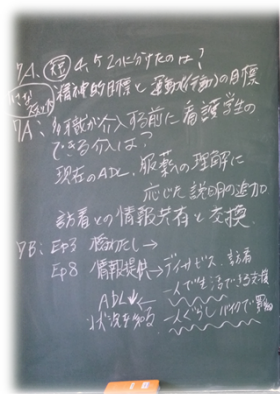 7A、短 4,5 2つに分けたのは？
精神的目標と運動(行動)の目標
7A: 多職が介入する前に看護学生の
できる介入は？
現在のADL、服薬への理解に
応じた説明の追加
訪看との情報共有と交換
7B: Ep3 →
Ep8 情報提供→デイサービス、訪看
ADL← 一人で生活できる支援
状況を知る 一人ぐらし バイクで